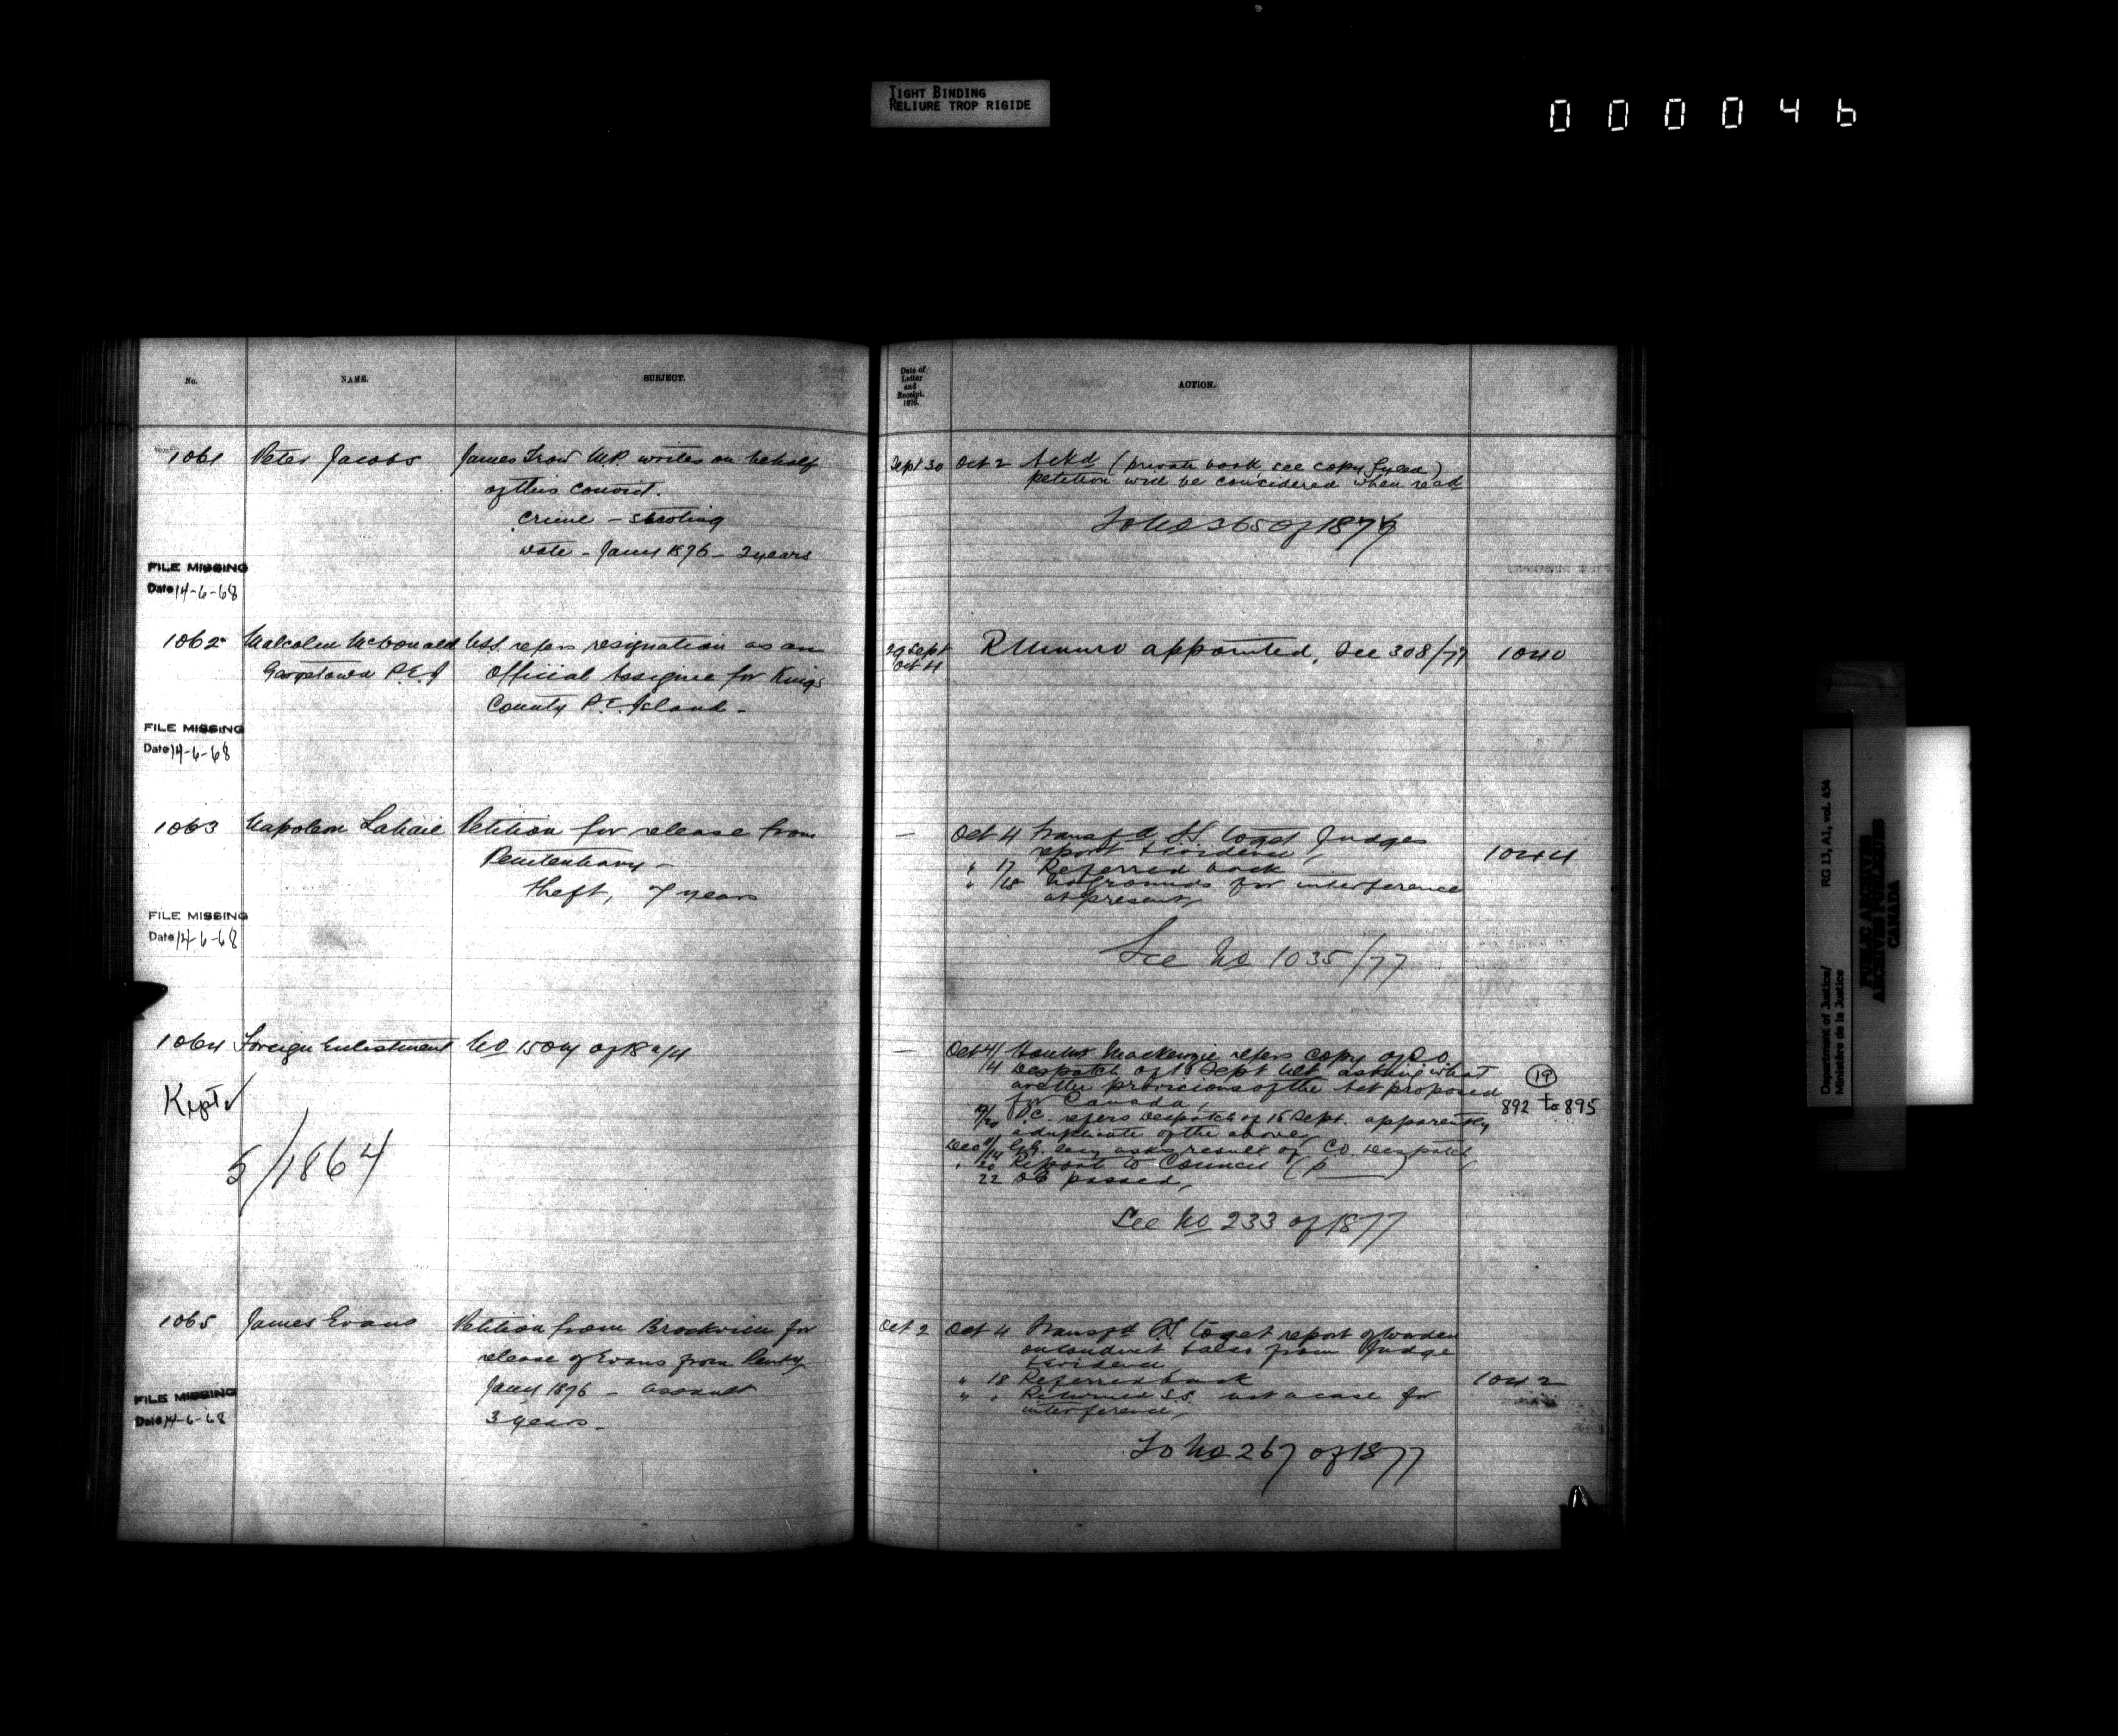 TIGHT BINDING
RELIURE TROP RIGIDE
000046
No.
NAME.
SUBJECT.
Date of
Letter
and
Receipt.
1876.
ACTION.
1061 Peter Jacobs James Trow M.P. writes on behalf
of this convict.
Crime – shooting
date – Jany 1876 – 2 years
Sept 30 Oct 2 Ackd (private book, see copy fyled)
petition will be considered when recd
To No 365 of 1876
FILE MISSING
Date 14-6-68
1062 Malcolm McDonald USS. refers resignation as an
Georgetown P.E.I Official Assignee for Kings
County P.E. Island –
29 Sept
Oct 4
R Munro appointed, see 308/77 1040
FILE MISSING
Date 14-6-68
1063 Napoleon Lahaie Petition for release from
Penitentiary –
theft, 7 years
— Oct 4 Transfd SS. to get Judges
report & evidence,
" 17 Referred back
" /18 No grounds for interference
at present,
1044
See No 1035/77
FILE MISSING
Date 14-6-68
1064 Foreign Enlistment No of
Kept ✓
5/1864
— Oct 4/ Mackenzie refers copy of C.O.
/4 Despatch of 1 Sept asking what
are the provisions of the Act proposed
for Canada,
P.C. refers Despatch of 15 Sept. apparently
a duplicate of the above,
Dec G.G. Secy asks result of C.O. Despatch,
" 20 Report to Council (p )
22 OC passed,
19
892 to 895
See No 233 of 1877
1065 James Evans Petition from Brockville for
release of Evans from Penty
Jany 1876 – assault
3 years –
Oct 2 Oct 4 Transfd SS. to get report of Warden
on conduct & also from Judge
& evidence
" 18 Referred back
" " Returned S.S. not a case for
interference,
1042
To No 267 of 1877
FILE MISSING
Date 14-6-68
Department of Justice/
Ministère de la Justice
RG 13, A1, vol. 454
PUBLIC ARCHIVES
ARCHIVES PUBLIQUES
CANADA